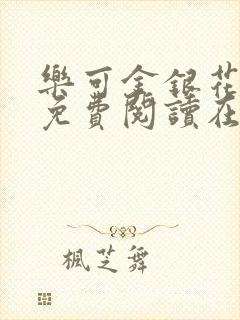 樂可金銀花
免費閱讀在
楓芝舞